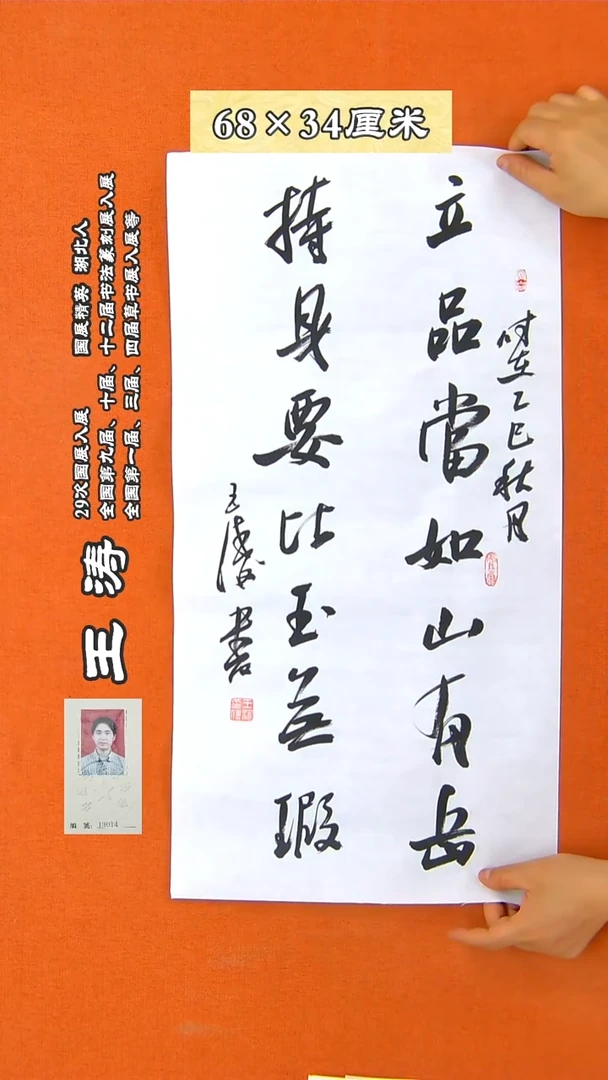 68×34厘米
立品當如山有岳
持身要比玉無瑕
时在乙巳秋月
王涛书
王涛
29次国展入展 国展精英 湖北人
全国第九届、十届、十二届书法篆刻展入展
全国第一届、三届、四届草书展入展等
编号：19014